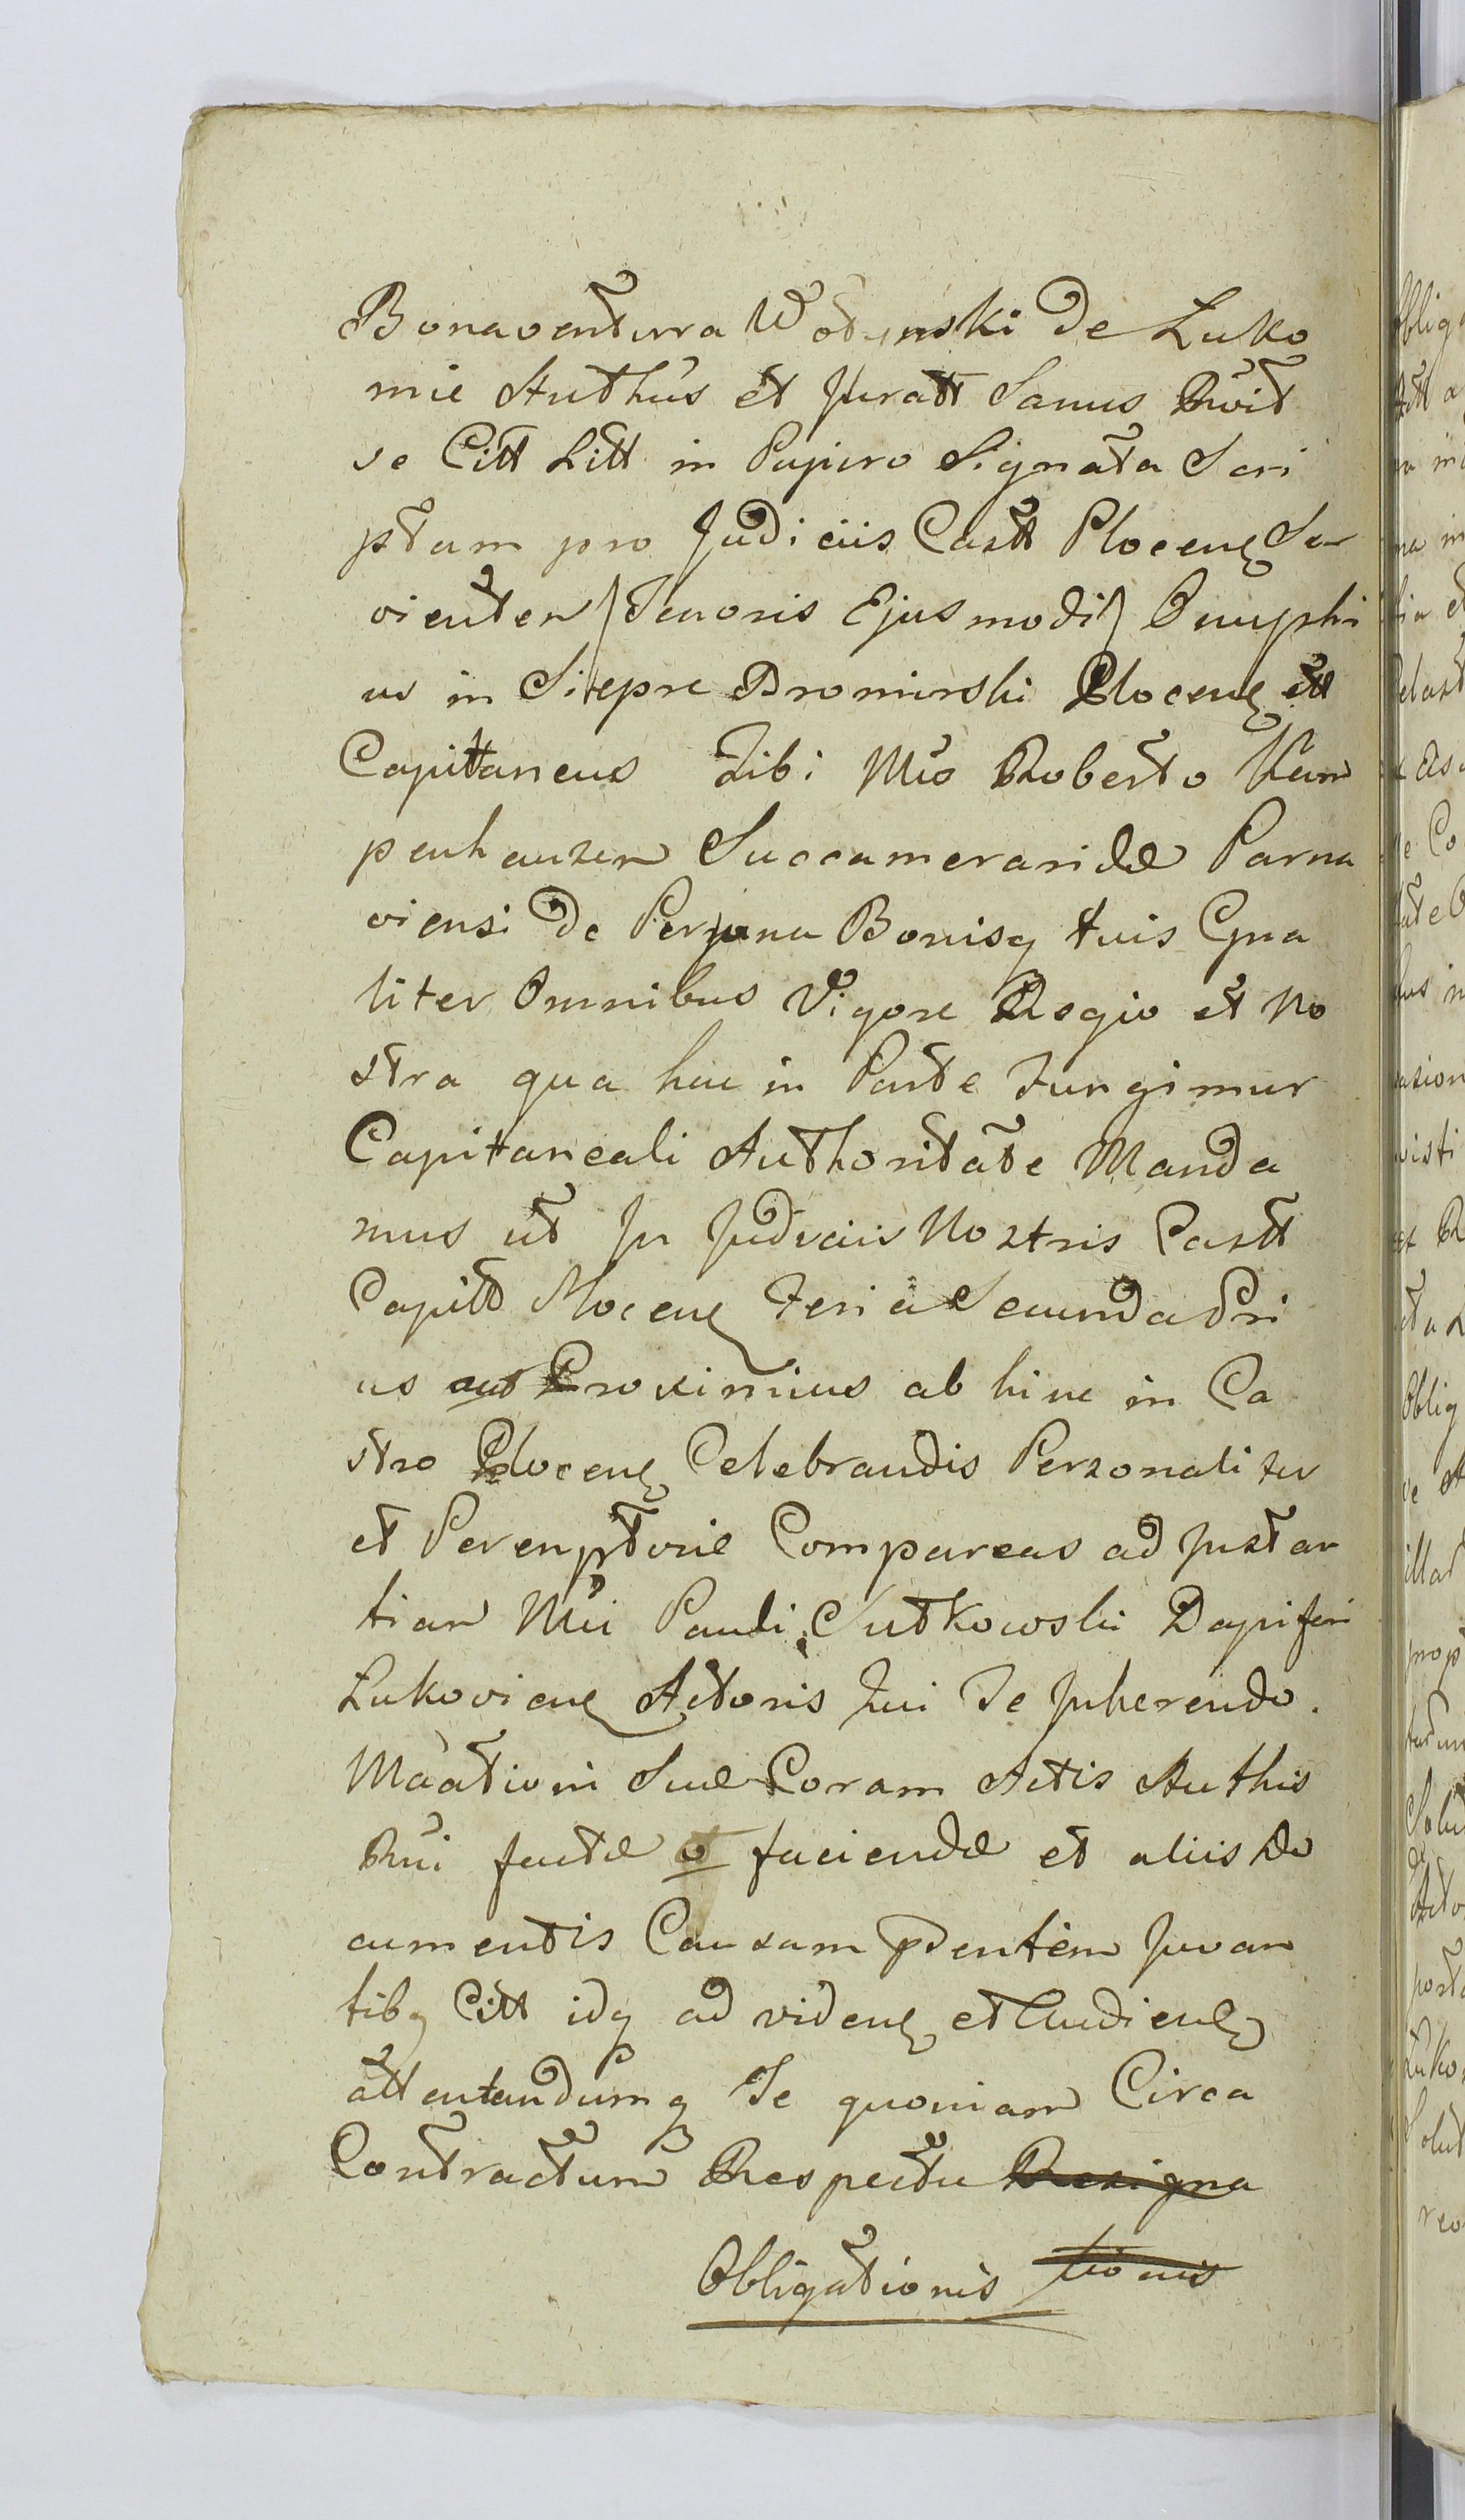 Bonaventura Wotynski de Luko
mie Authus et Juratt Sanus Rvit
se Citt Litt in Papiro Signata Scri
ptam pro Judiciis Castt Plocens Ser
vienten /Tenoris Ejusmodi/ Onuphri
us in Siepre Bromirski Plocens ett
Capitaneus Tibi Mco Roberto Kam
penhauzen Succameraridae Parna
viensi de Persona Bonisq tuis Gna
liter Omnibus Vigore Regio et No
stra qua hac in Parte Fungimur
Capitaneali Authoritate Manda
mus ut In Judiciis Nostris Castt
Capitt Plocens Feria Secunda Pri
us aut Proximius ab hinc in Ca
stro Plocens Celebrandis Personaliter
et Peremptorie Compareas ad Instan
tiam Mci Pauli Sutkowski Dapiferi
Lukoviens Actoris Qui Te Inherendo
Maationi Suae Coram Actis Authis
Rni factae et faciendae et aliis Do
cumentis Causam pdentem Juvan
tibq Citt idq ad videns et Audiens
attentandumq Te quoniam Circa
Contractum Respectu Resigna
Obligationis tionis